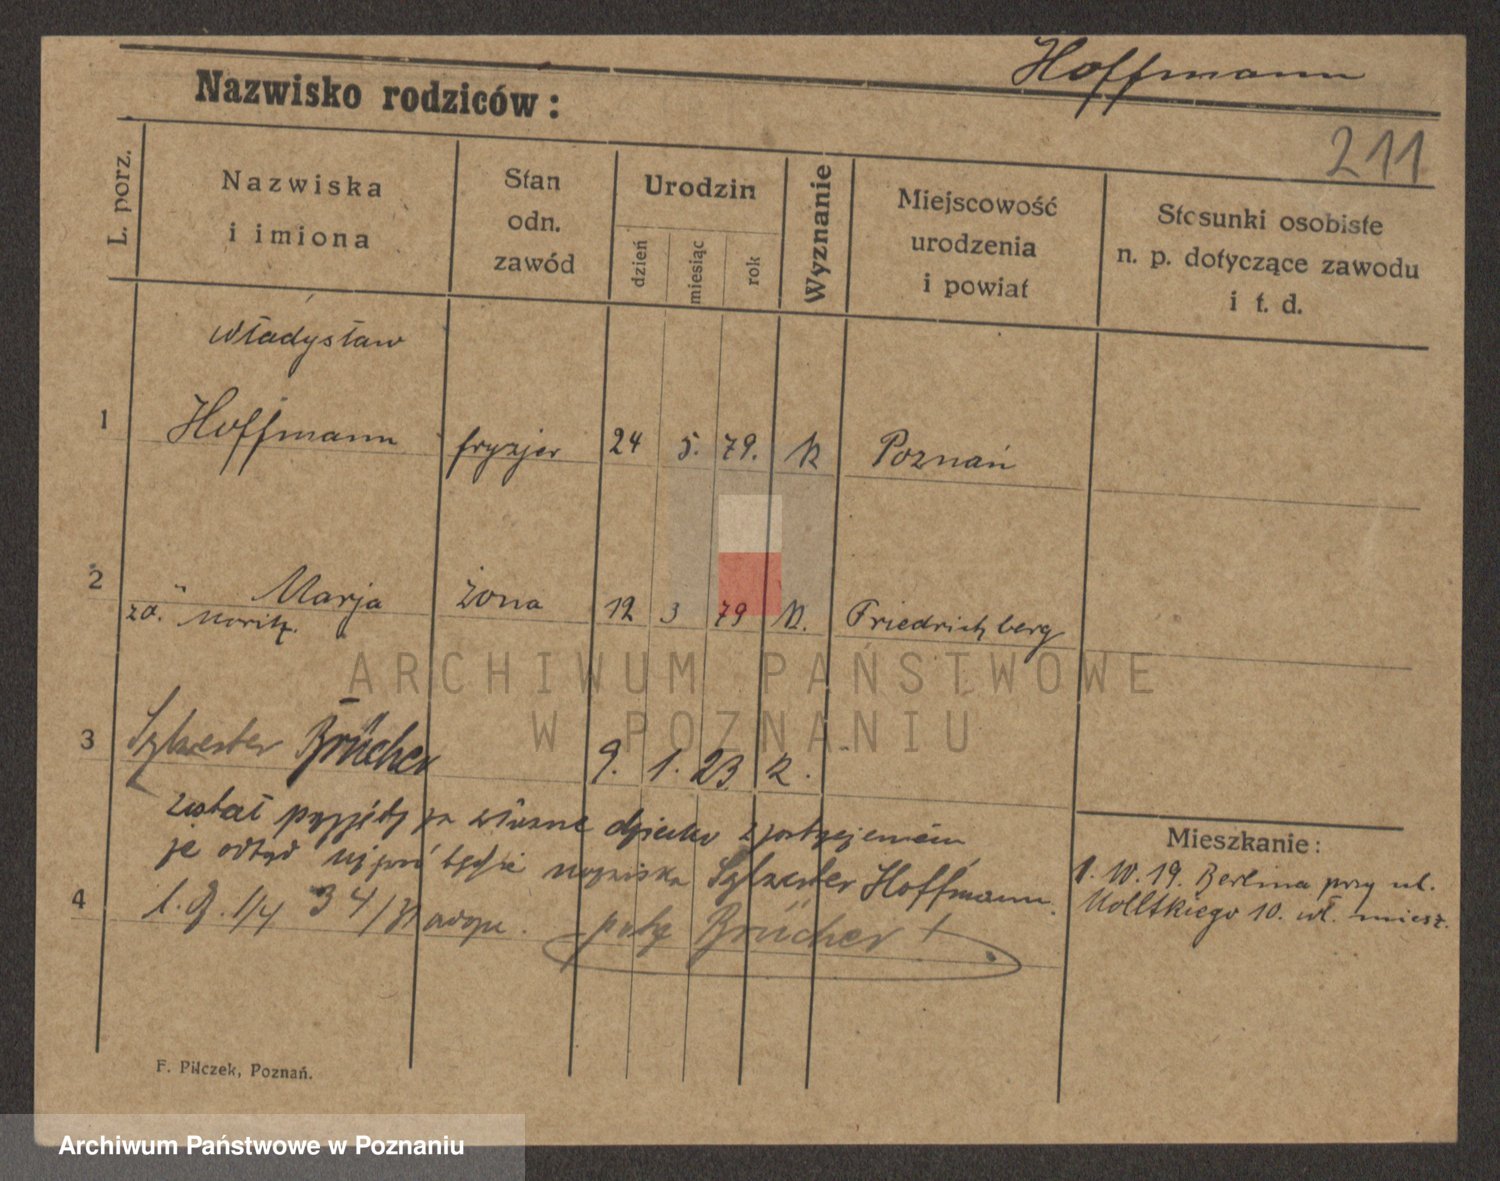 Hoffmann
Nazwisko rodziców:
211
L. porz.
Nazwiska
i imiona
Stan
odn.
zawód
Urodzin
dzień
miesiąc
rok
Wyznanie
Miejscowość
urodzenia
i powiat
Stosunki osobiste
n. p. dotyczące zawodu
i t. d.
Władysław
1 Hoffmann fryzjer 24 5. 79. K Poznań
2 " Marja żona 12 3 79 K. Friedrichberg
zd. Moritz.
ARCHIWUM PAŃSTWOWE
W POZNANIU
3 Sylwester Brücher 9. 1. 23 k.
został przyjęty za własne dziecko z zastrzeżeniem
że odtąd będzie nazwiska Sylwester Hoffmann.
4 34/ adop. patrz Brücher!
Mieszkanie:
1. 10. 19. Berlina przy ul.
Moltkiego 10. wł. miesz.
F. Pilczek, Poznań.
Archiwum Państwowe w Poznaniu